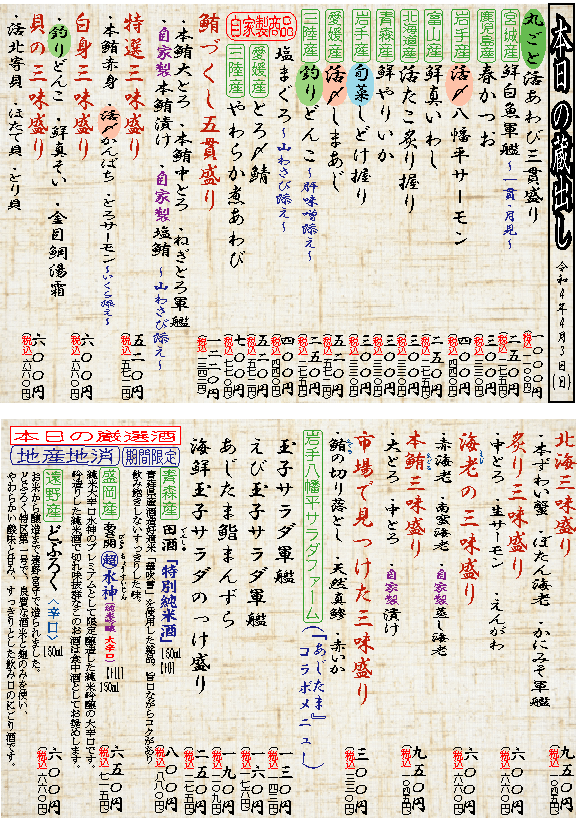 本日の蔵出し 令和4年4月3日(日)
丸ごと 活あわび三貫盛り 一〇〇〇円 (税込 一一〇〇円)
宮城産 鮮白魚軍艦 ～一貫・月見～ 二五〇円 (税込 二七五円)
鹿児島産 春かつお 三〇〇円 (税込 三三〇円)
岩手産 活〆八幡平サーモン 四〇〇円 (税込 四四〇円)
富山産 鮮真いわし 二五〇円 (税込 二七五円)
北海道産 活たこ炙り握り 三〇〇円 (税込 三三〇円)
青森産 鮮やりいか 三〇〇円 (税込 三三〇円)
岩手産 旬菜しどけ握り 三〇〇円 (税込 三三〇円)
愛媛産 活〆しまあじ 五二〇円 (税込 五七二円)
三陸産 釣りどんこ ～肝味噌添え～ 二五〇円 (税込 二七五円)
自家製商品
塩まぐろ ～山わさび添え～ 四〇〇円 (税込 四四〇円)
愛媛産 とろ〆鯖 五二〇円 (税込 五七二円)
三陸産 やわらか煮あわび 七〇〇円 (税込 七七〇円)
鮪づくし五貫盛り 一二二〇円
・本鮪大とろ ・本鮪中とろ ・ねぎとろ軍艦
・自家製本鮪漬け ・自家製塩鮪 ～山わさび添え～
特選三味盛り 五二〇円 (税込 五七二円)
・本鮪赤身 ・活〆かんぱち ・とろサーモン ～いくら添え～
白身三味盛り 六〇〇円 (税込 六六〇円)
・釣りどんこ ・鮮真そい ・金目鯛湯霜
貝の三味盛り 六〇〇円 (税込 六六〇円)
・活北寄貝 ・ほたて貝 ・とり貝
北海三味盛り 九五〇円 (税込 一〇四五円)
・本ずわい蟹 ・ぼたん海老 ・かにみそ軍艦
炙り三味盛り 六〇〇円 (税込 六六〇円)
・中とろ ・生サーモン ・えんがわ
海老の三味盛り 六〇〇円 (税込 六六〇円)
・赤海老 ・南蛮海老 ・自家製蒸し海老
本鮪三味盛り 九五〇円 (税込 一〇四五円)
・大とろ ・中とろ ・自家製漬け
市場で見つけた三味盛り 三〇〇円 (税込 三三〇円)
・鮪の切り落とし ・天然真鯵 ・赤いか
岩手八幡平サラダファーム (『あじたま』コラボメニュー)
玉子サラダ軍艦 一三〇円 (税込 一四三円)
えび玉子サラダ軍艦 一六〇円 (税込 一七六円)
あじたま鮨まんずら 一九〇円 (税込 二〇九円)
海鮮玉子サラダのっけ盛り 二五〇円 (税込 二七五円)
本日の厳選酒
地産地消 期間限定
青森産 田酒「特別純米酒」 180ml 八〇〇円 (税込 八八〇円)
青森県産酒造好適米「華吹雪」を使用した銘品。旨口ながらコクがあり
飲み飽きしないすっきりした味。
盛岡産 超水神 180ml 六五〇円 (税込 七一五円)
純米大辛口水神のプレミアムとして限定醸造した純米吟醸の大辛口です。
遠野産 どぶろく <辛口> 180ml 六〇〇円 (税込 六六〇円)
お米から醸造まで遠野宮守で造られました。
どぶろく特区第一号で、良質な酒米と麹のみを使い、
やわらかい酸味と甘み、すっきりとした飲み口のにごり酒です。